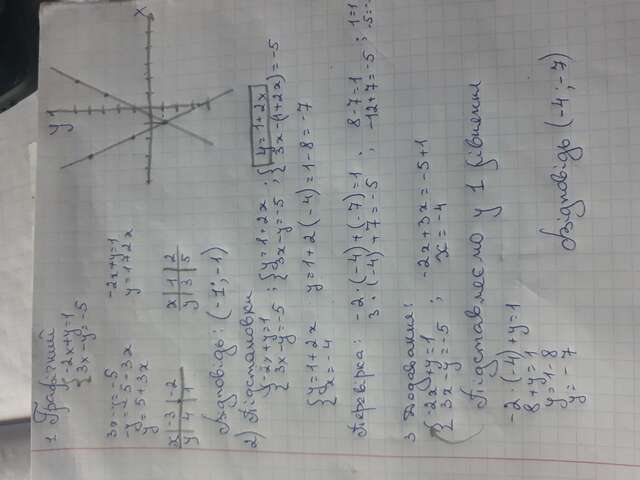 1. Графічний
{ -2x+y=1
3x-y=-5
3x-y=-5
-y=-5-3x
y=5+3x
-2x+y=1
y=1+2x
x | -3 | -2
y | -4 | -1
x | 1 | 2
y | 3 | 5
y
x
Відповідь: (-1; -1)
2) Підстановки
{ -2x+y=1 ; { y=1+2x ; { y=1+2x
3x-y=-5 ; 3x-y=-5 ; 3x-(1+2x)=-5
{ y=1+2x
x=-4
y=1+2(-4)=1-8=-7
Перевірка: -2·(-4)+(-7)=1 ; 8-7=1 ; 1=1
3·(-4)+7=-5 ; -12+7=-5 ; -5=-
3 Додавання:
{ -2x+y=1
3x-y=-5 ; -2x+3x=-5+1
x=-4
Підставляємо у 1 рівняння
-2·(-4)+y=1
8+y=1
y=1-8
y=-7
Відповідь (-4; -7)